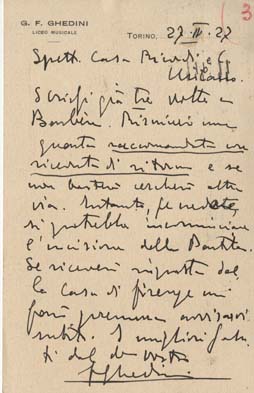 G. F. GHEDINI
LICEO MUSICALE
TORINO, 27. IV. 27
3
Spett. Casa Ricordi e C
Milano.
Scrissi già tre volte a
Barbèra. Rismisi una
quarta raccomandata con
ricevuta di ritorno e se
non basterà cercherò altra
via. Intanto, se credete,
si potrebbe incominciare
l'incisione della Partita.
Se riceverò risposta dal
la Casa di Firenze mi
farò premura avvisarvi
subito. I migliori salu
ti dal dev. vostro
Ghedini